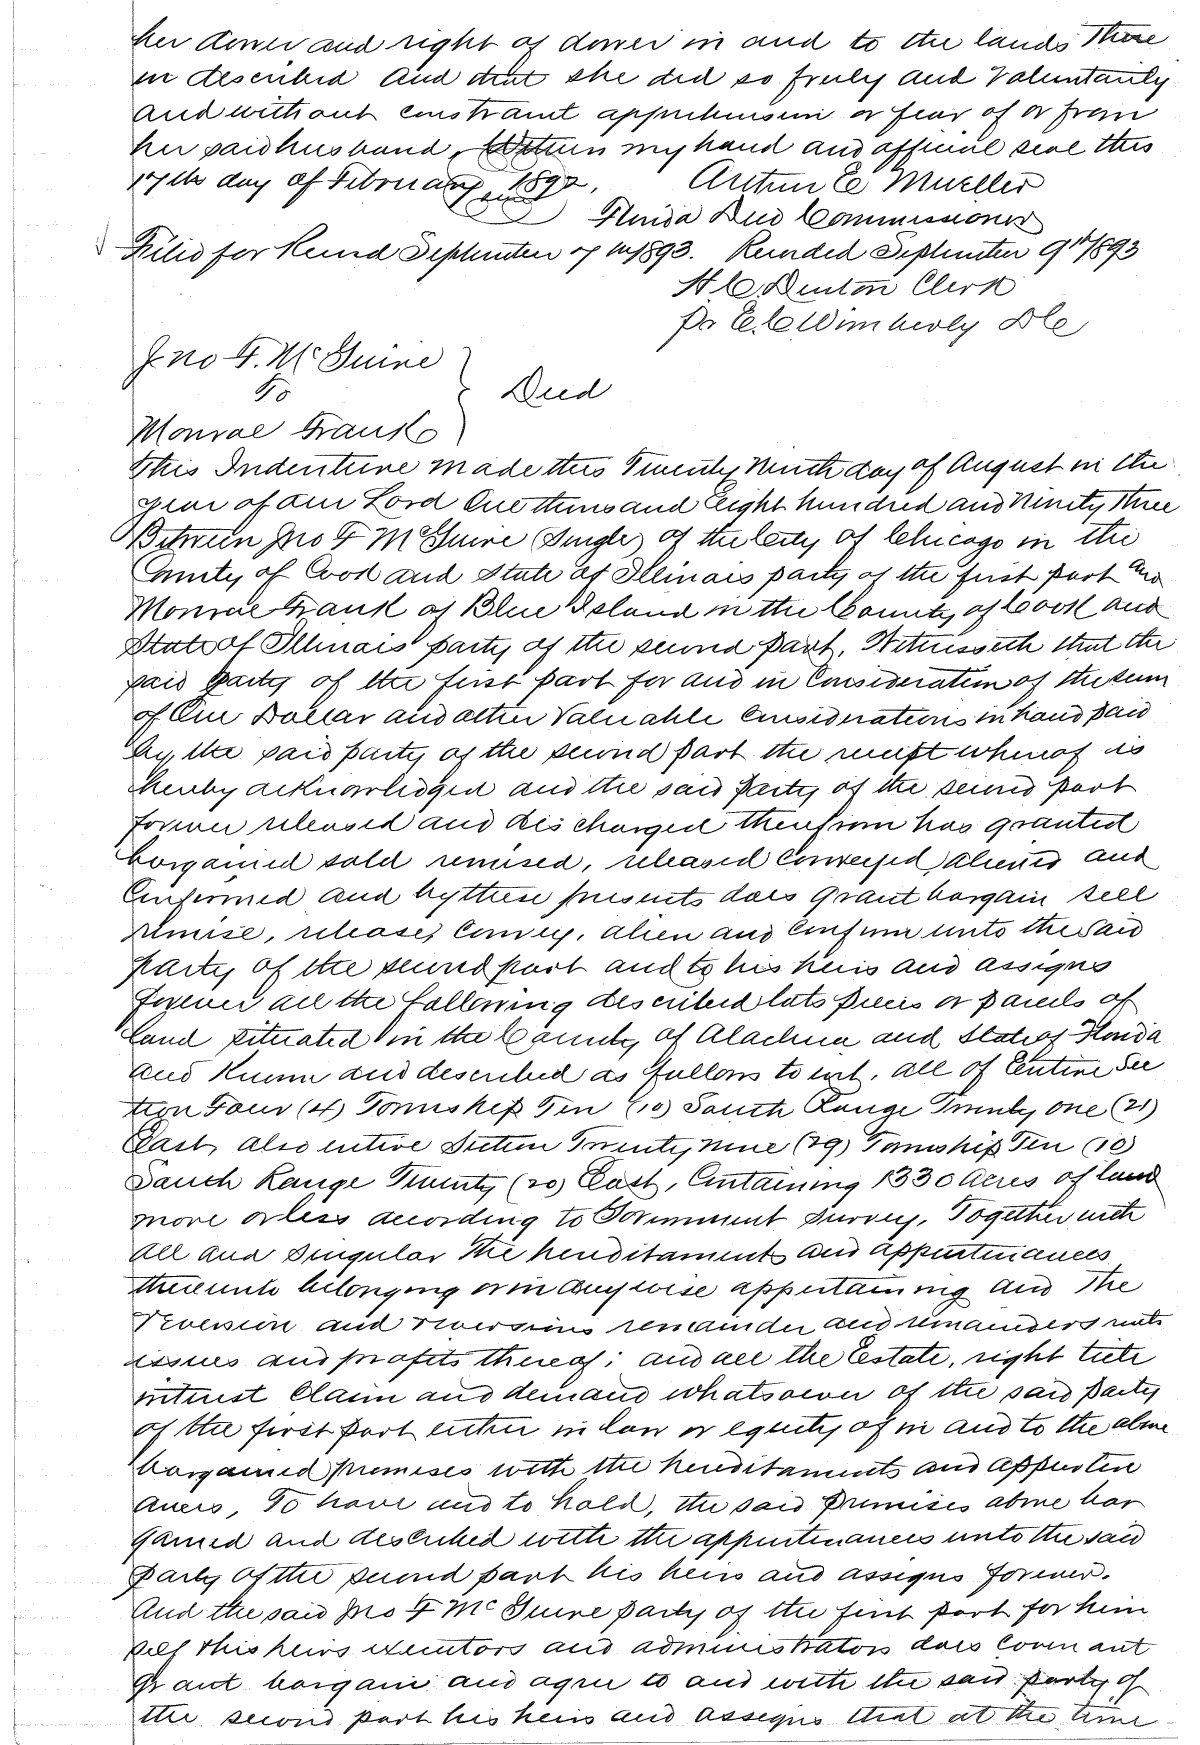 her dower and right of dower in and to the lands there
in described And that she did so freely and Voluntarily
and without constraint apprehension or fear of or from
her said husband, Witness my hand and official seal this
17th day of February 1892. Arthur E Mueller
Florida Deed Commissioner
Filed for Record September 7th 1893. Recorded September 9th 1893
H.C. Denton Clerk
Pr E.C. Wimberly D C
Jno F. McGuire
To
Deed
Monroe Frank
This Indenture made this Twenty Ninth day of August in the
year of our Lord One thousand Eight hundred and Ninety three
Between Jno F McGuire (Single) of the City of Chicago in the
County of Cook and State of Illinois party of the first part and
Monroe Frank of Blue Island in the County of Cook and
State of Illinois party of the second part, Witnesseth that the
said party of the first part for and in Consideration of the sum
of One Dollar and other Valuable Considerations in hand paid
by the said party of the second part the receipt whereof is
hereby acknowledged and the said party of the second part
forever released and discharged therefrom has granted
bargained sold remised, released conveyed aliened and
Confirmed and by these presents does grant bargain sell
remise, release, convey, alien and Confirm unto the said
party of the second part and to his heirs and assigns
forever all the following described lots pieces or parcels of
land situated in the County of Alachua and State of Florida
and Known and described as follows to wit, all of Entire Sec
tion Four (4) Township Ten (10) South Range Twenty one (21)
East, also entire Section Twenty nine (29) Township Ten (10)
South Range Twenty (20) East, Containing 1330 Acres of land
more or less according to Government survey, Together with
all and singular the hereditaments and appurtenances
thereunto belonging or in anywise appertaining and the
reversion and reversions remainder and remainders rents
issues and profits thereof; and all the Estate, right title
interest Claim and demand whatsoever of the said party
of the first part either in law or equity of in and to the above
bargained premises with the hereditaments and appurten
ances, To have and to hold, the said premises above bar
gained and described with the appurtenances unto the said
party of the second part his heirs and assigns forever.
And the said Jno F McGuire party of the first part for him
self his heirs executors and administrators does Covenant
grant bargain and agree to and with the said party of
the second part his heirs and assigns that at the time